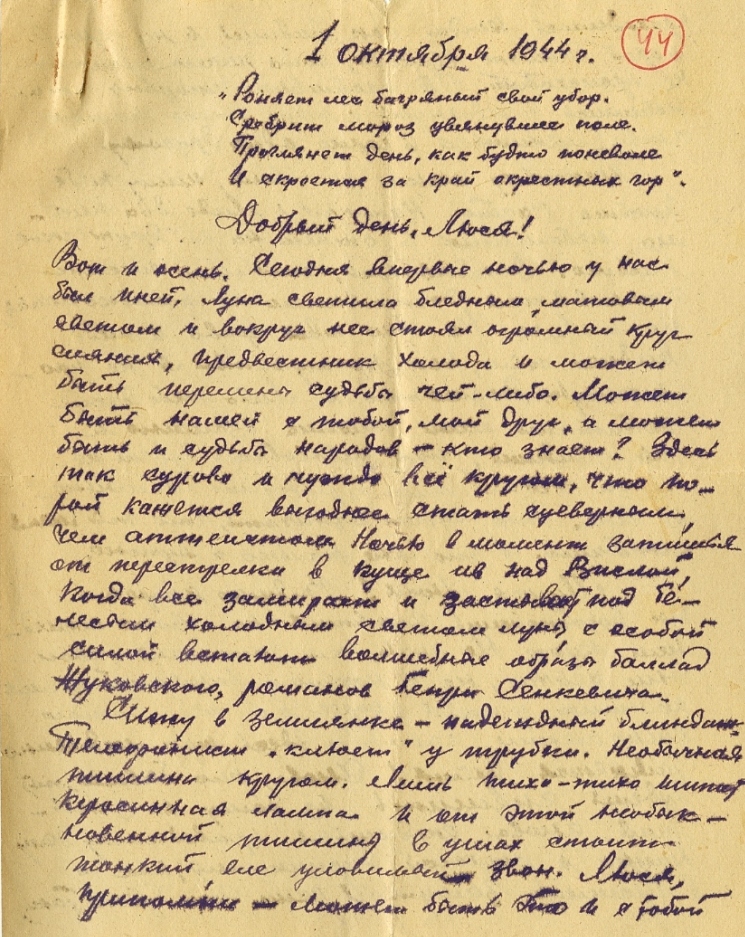 1 октября 1944 г.
44
"Роняет лес багряный свой убор.
Сребрит мороз увянувшее поле.
Проглянет день, как будто поневоле
И скроется за край окрестных гор".
Добрый день, Люся!
Вот и осень. Сегодня впервые ночью у нас
был иней. Луна светила бледным, матовым
светом и вокруг нее стоял огромный круг
сияния, предвестник холода и может
быть перемены судьбы чей-либо. Может
быть нашей с тобой, мой друг, а может
быть и судьбы народов – кто знает? Здесь
так сурово и чуждо всё кругом, что по-
рой кажется выгоднее стать суеверным,
чем аттеистом. Ночью в момент затишья
от перестрелки в куще ив над Вислой,
когда все замирает и застывает под не-
бесным холодным светом луны с особой
силой встают волшебные образы баллад
Жуковского, романов Генри Сенкевича.
Сижу в землянке – надежный блиндаж.
Телефонист "клюет" у трубки. Необычная
тишина кругом. Лишь тихо-тихо шипит
керосинная лампа и от этой необык-
новенной тишины в ушах стоит
тонкий еле уловимый звон. Люся,
припомни – может быть это и с тобой